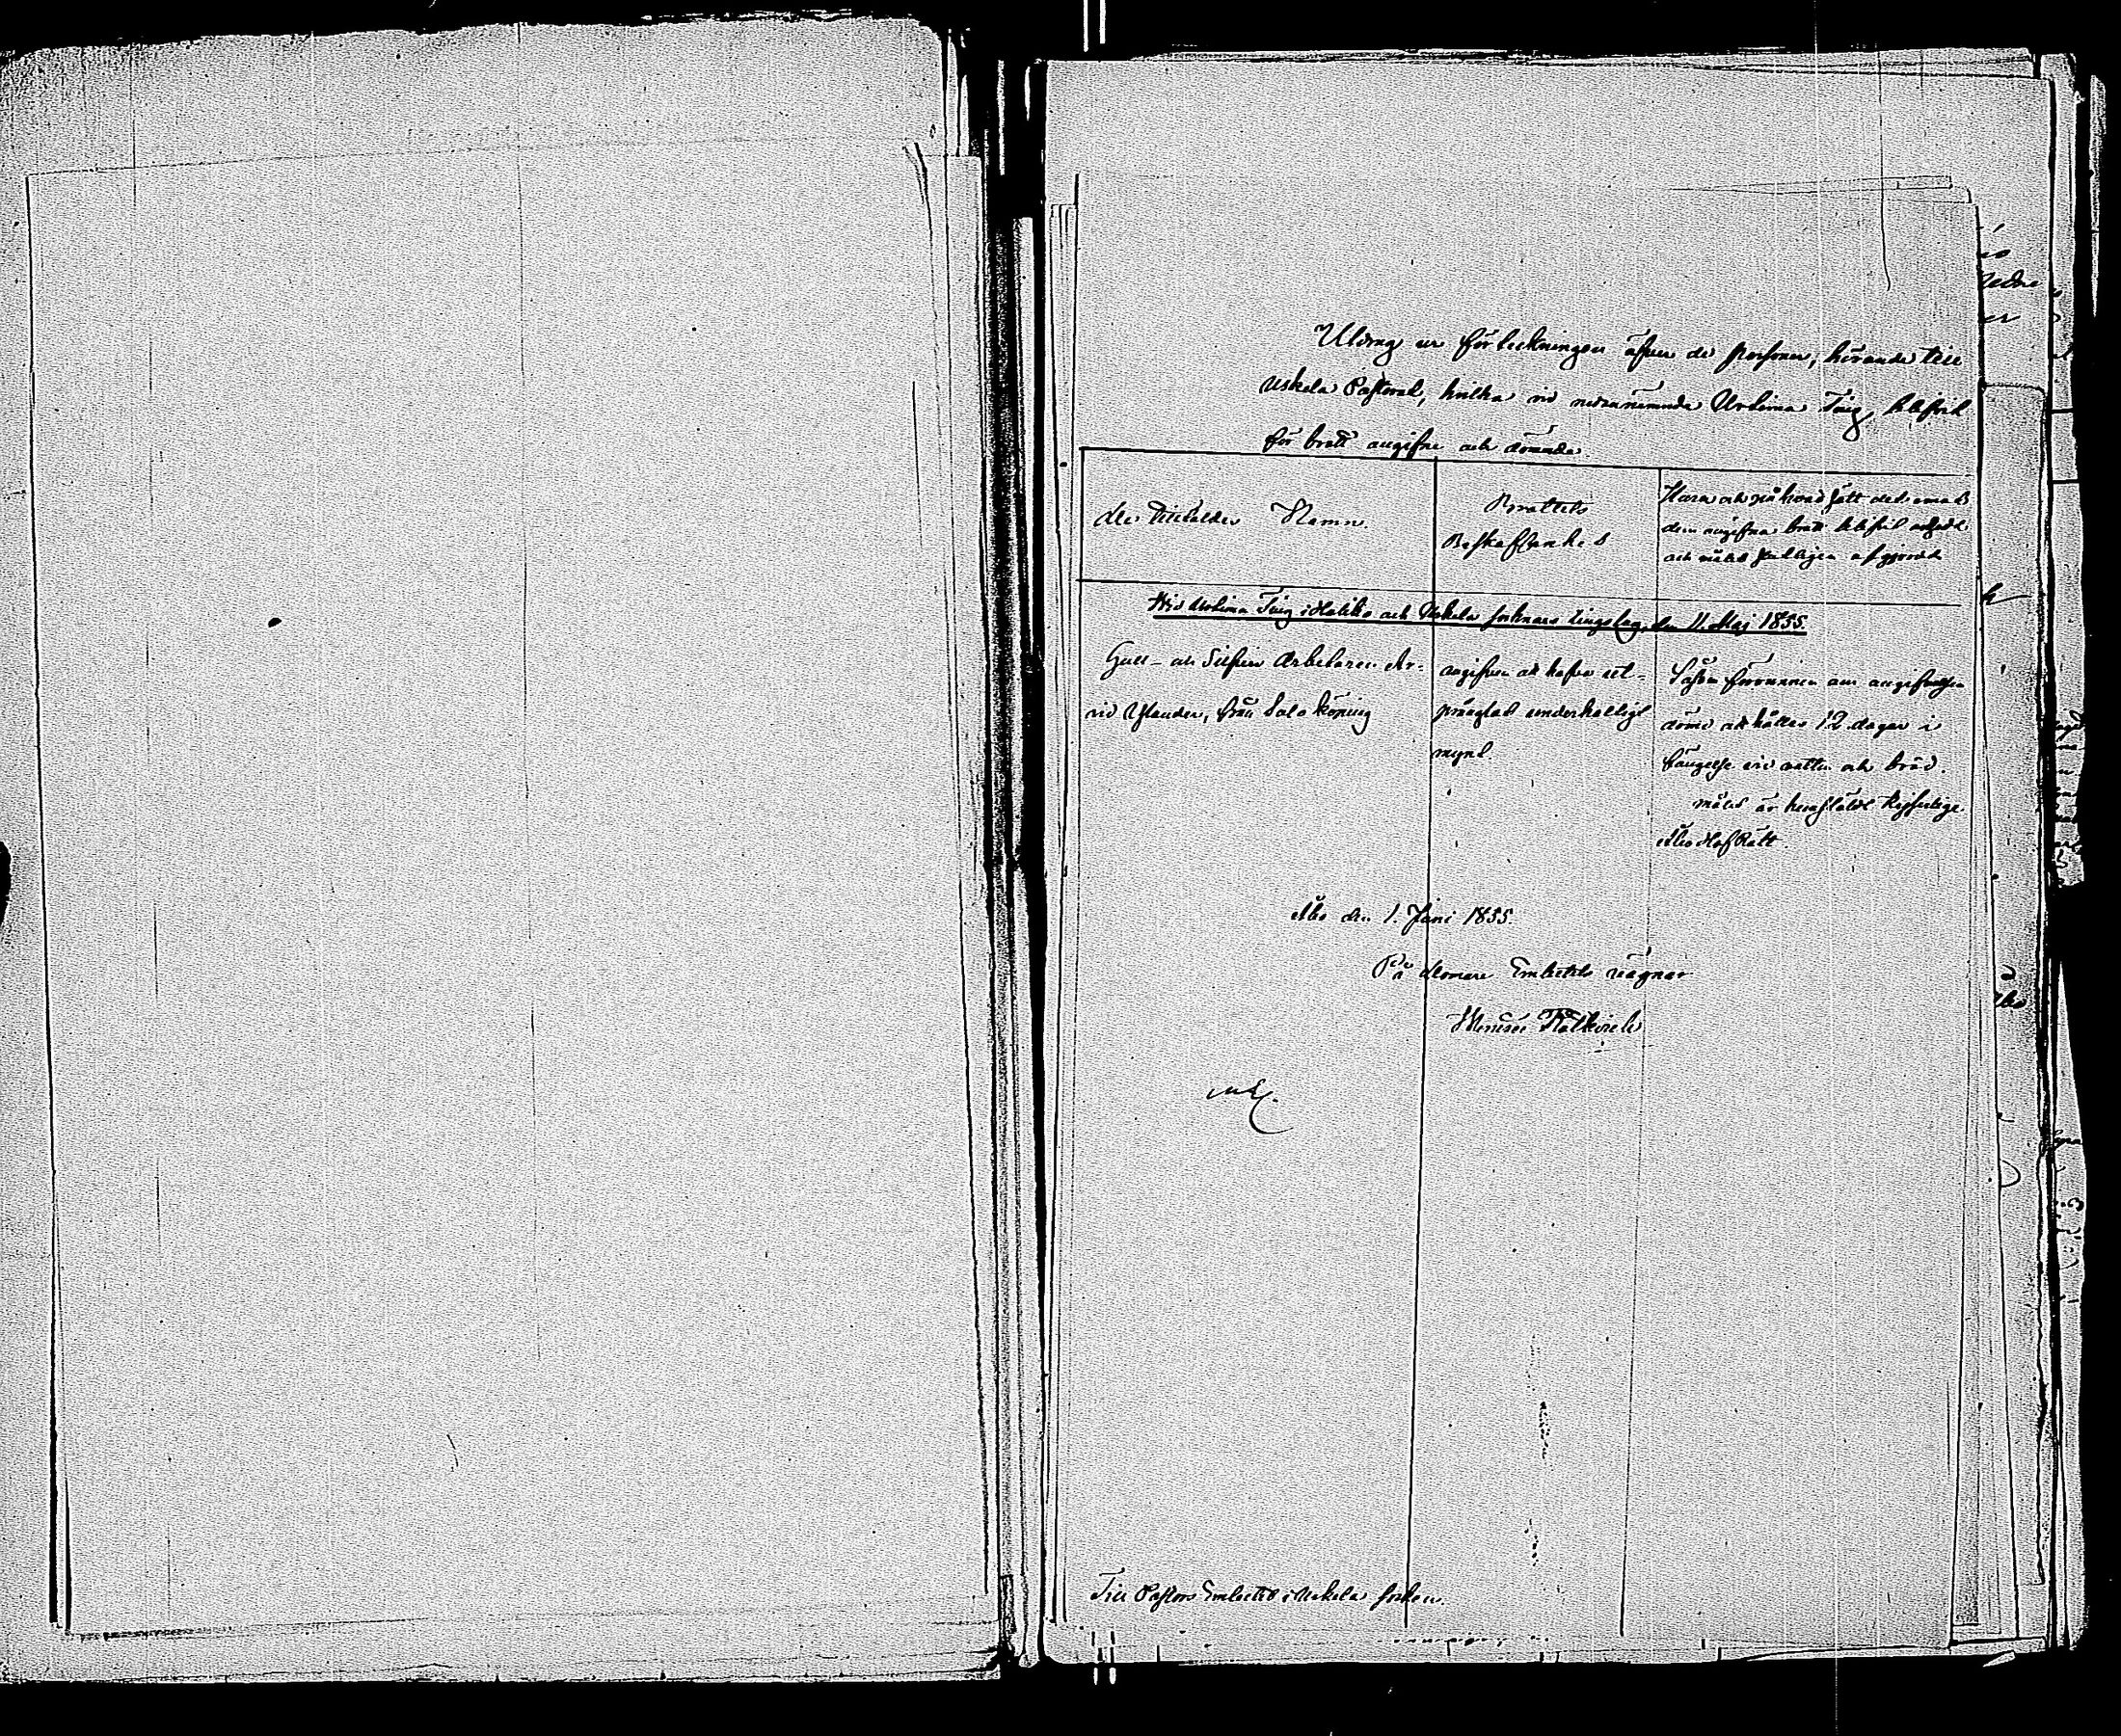 Utdrag ur förteckningen öfver de personer, hörande till
Uskela Pastorat, hvilka vid nedannämnde Urtima Ting, blifvit
för brott angifne och dömde.
De Tilltalades Namn.
Brottets
Beskaffenhet
Huru och på hvad sätt det emot
dem angifna brott blifvit
och målet slutligen afgjordt
Wid Urtima Ting i Haliko och Uskela socknars tingslag, den 11. Maj 1855.
Gull- och Silfver Arbetaren Ar-
vid Uplander, från Salo köping
angifven att hafva ut-
prånglat underhaltigt
mynt.
Såsom förvunnen om angifvelsen
dömd att hållas 12 dagar i
fängelse vid vatten och bröd.
målet är hemstäldt Kejserlige
Åbo HofRätt.
Åbo den 1. Juni 1855.
På Domare Embetets vägnar
Till Pastors Embetet i Uskela socken.